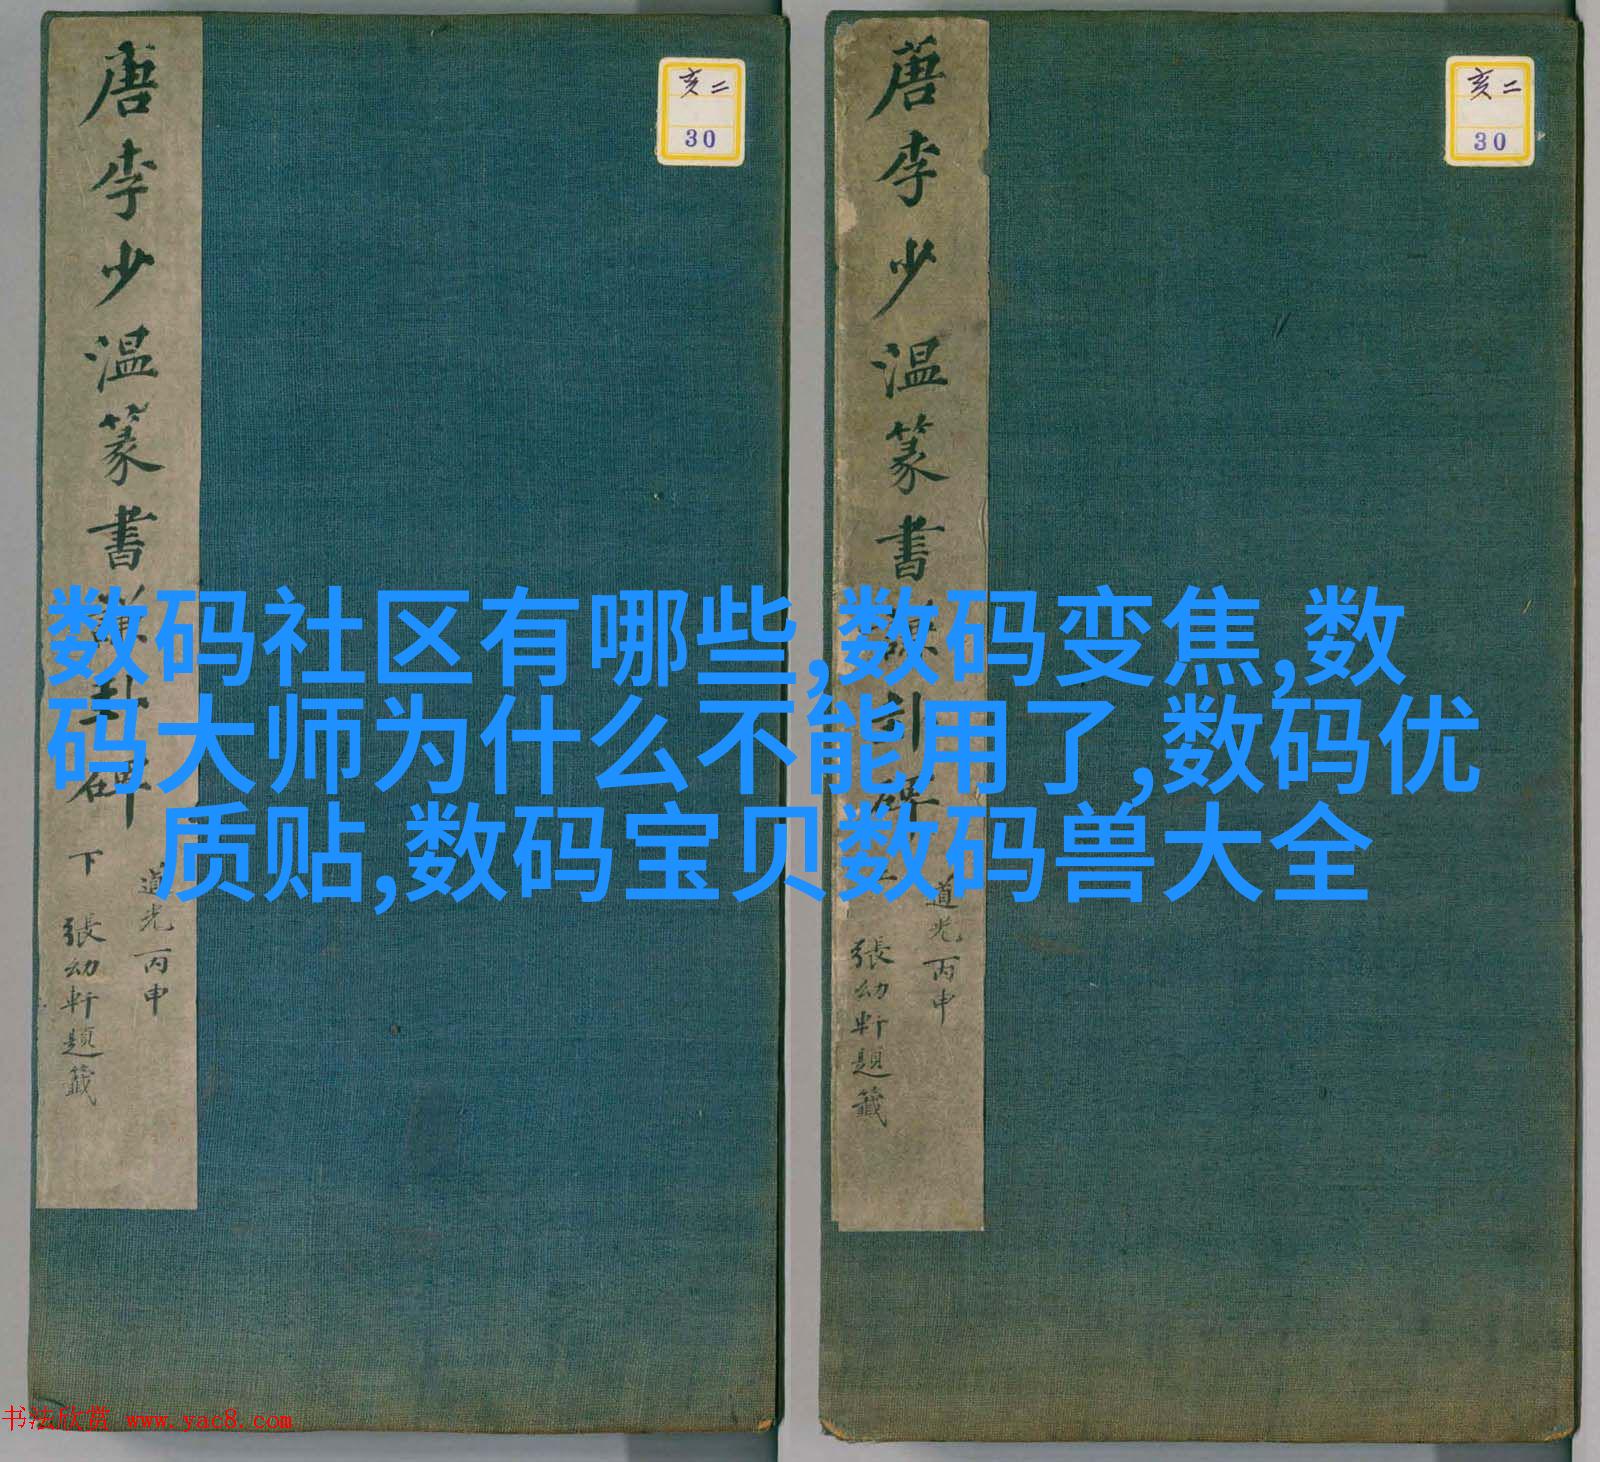 唐李少温篆書謙卦碑 下
道光丙申
張幼軒題籤
亥二
30
唐李少温篆書謙卦碑 上
道光丙申
張幼軒題籤
亥二
30
数码社区有哪些,数码变焦,数
码大师为什么不能用了,数码优
质贴,数码宝贝数码兽大全
书法欣赏 www.yac8.com